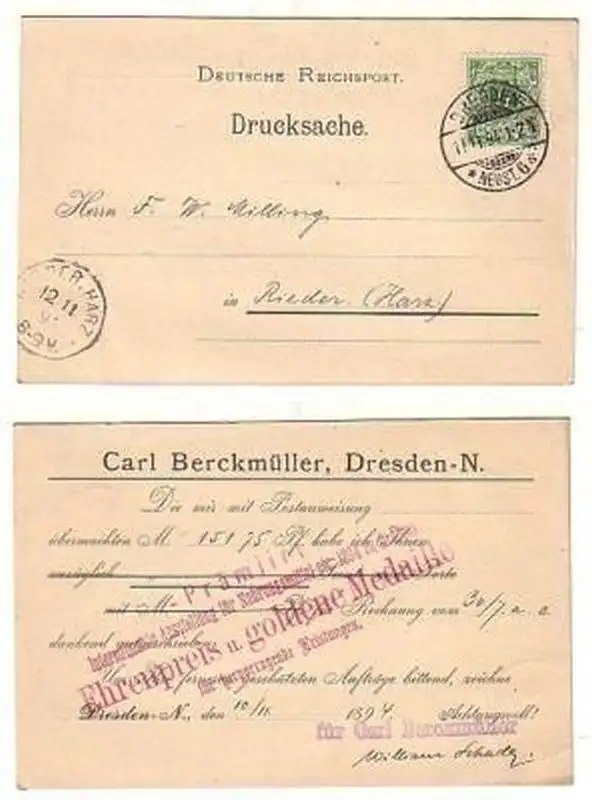 DEUTSCHE REICHSPOST.
Drucksache.
DRESDEN-
1-2N
* NEUST. 6 a.
Herrn F. W. Milling
in Rieder. (Harz)
12 11
8-9V.
HARZ
Carl Berckmüller, Dresden-N.
Die mir mit Postanweisung
übermachten M. 151 75 Pf. habe ich Ihnen
Porto
mit M. Rechnung vom 30/7. a. a.
dankend gutgeschrieben.
geschätzten Aufträge bittend, zeichne
Dresden-N., den 10/11. 1894. Achtungsvoll!
Prämiirt
Internationale Ausstellung für Nahrungsmittel
Ehrenpreis u. goldene Medaille
für hervorragende Leistungen.
für Carl Berckmüller
William